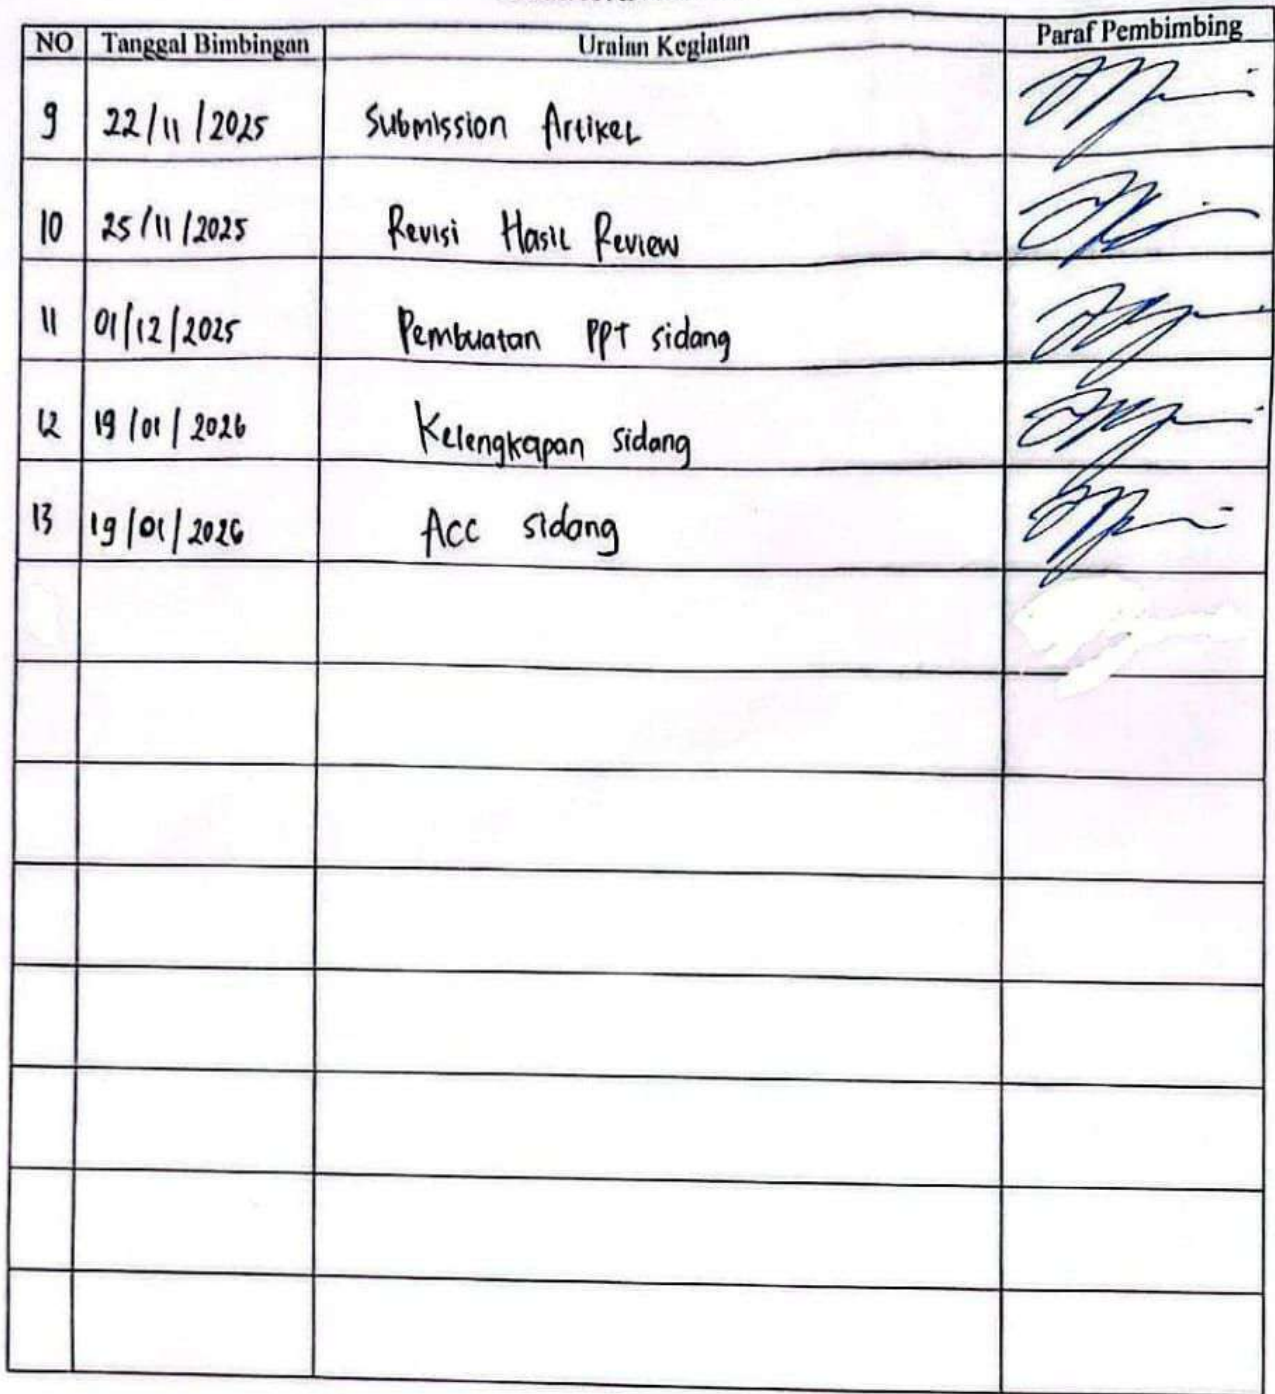 NO Tanggal Bimbingan Uraian Kegiatan Paraf Pembimbing
9 22/11/2025 Submission Artikel
10 25/11/2025 Revisi Hasil Review
11 01/12/2025 Pembuatan PPT sidang
12 19/01/2026 Kelengkapan sidang
13 19/01/2026 Acc sidang